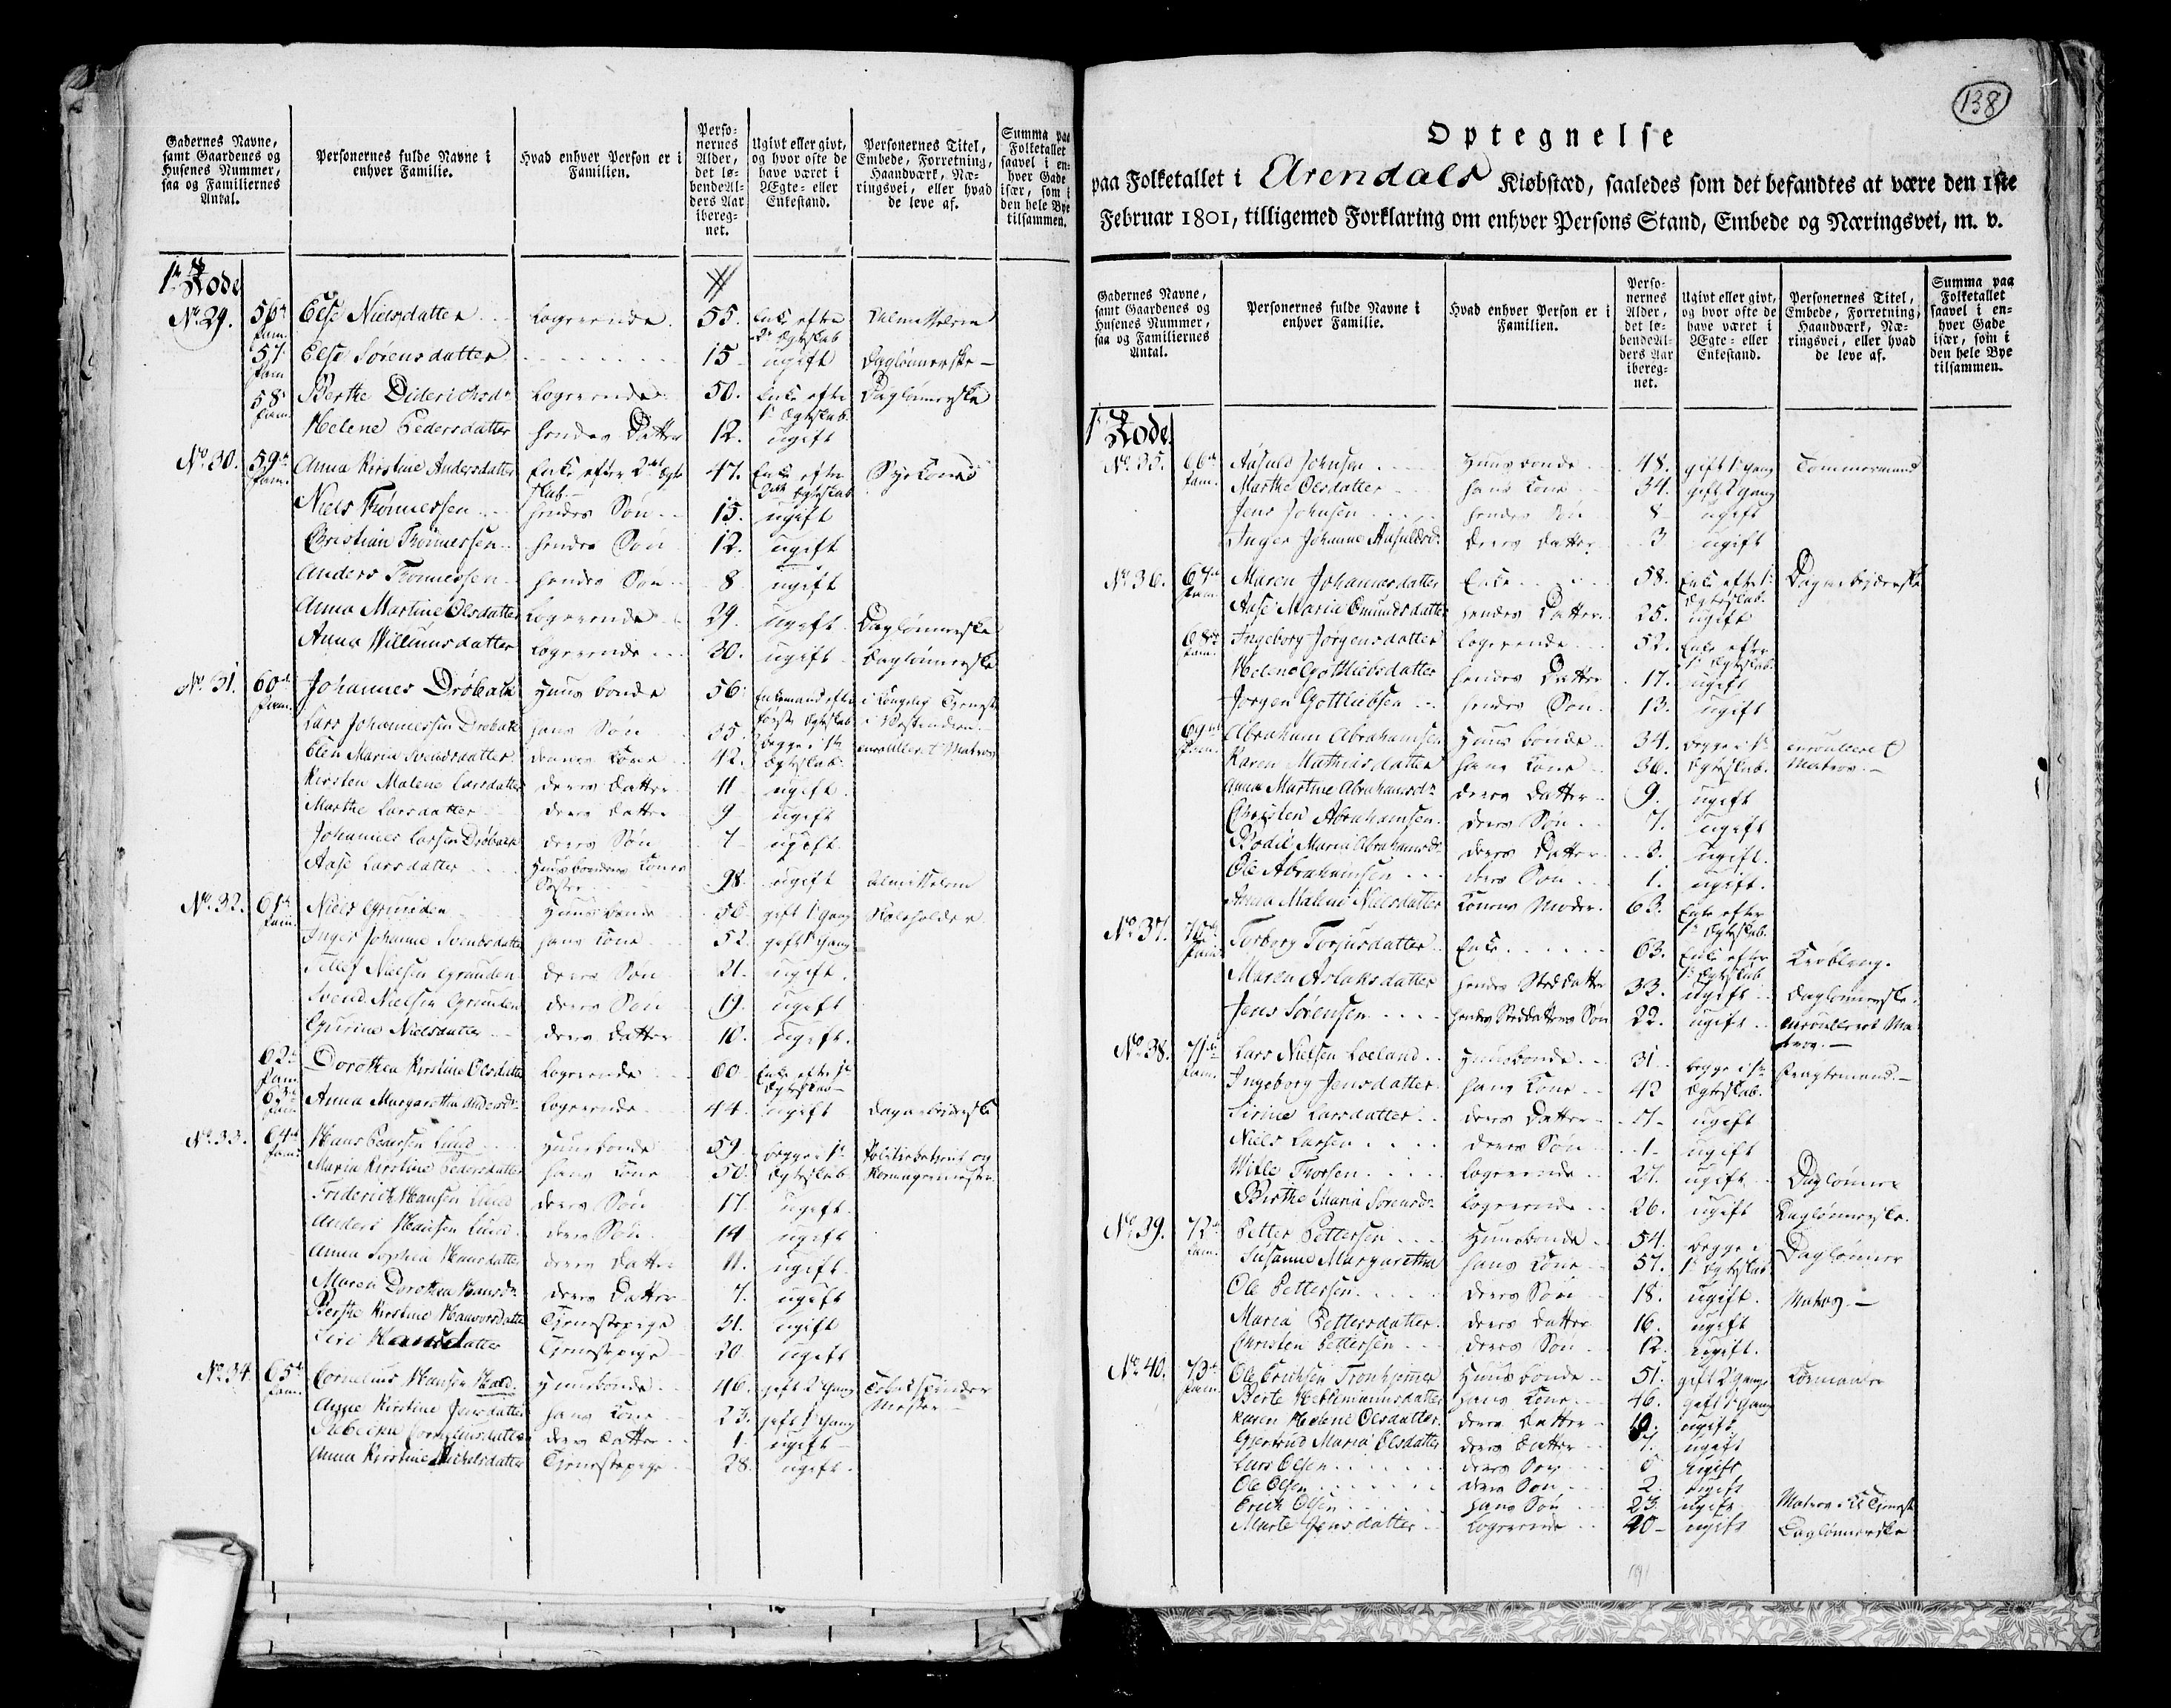 Gadernes Navne, samt Gaardenes og Husenes Nummer, saa og Familiernes Antal.
Personernes fulde Navne i enhver Familie.
Hvad enhver Person er i Familien.
Personernes Alder, det løbende Alders Aar iberegnet.
Ugivt eller givt, og hvor ofte de have været i Ægte- eller Enkestand.
Personernes Titel, Embede, Forretning, Haandværk, Næringsvei, eller hvad de leve af.
Summa paa Folketallet saavel i enhver Gade især, som i den hele Bye tilsammen.
1te Rode
No. 29. 56de fam. Else Nielsdatter Logerende. 55. Enke efter 2de Ægteskab Almisselem
57 fam Else Sørensdatter 15 ugift Daglønnerske
58 fam Berthe Diderichsdr Logerende 50. Enke efter 1te Ægteskab Daglønnerske
Helene Pedersdatter hendes Datter 12. ugift
No. 30. 59de fam. Anna Kirstine Andersdatter Enke efter 2det Ægteskab 47. Enke efter 2det Ægteskab Syekone
Niels Thønnessen hendes Søn 15. ugift
Christian Thønnessen hendes Søn 12. ugift
Anders Thonnessen hendes Søn 8 ugift
Anna Martine Olsdatter Logerende 29. ugift Daglønnerske
Anna Willumsdatter Logerende 30. ugift Daglønnerske
No. 31. 60de fam. Johannes Drøbach Huusbonde 56. Enkemand efter første Ægteskab i Kongelig Tjeneste
Lars Johannessen Drøbach hans Søn 35. begge i 1te Ægteskab enroulleret Matros
Elen Maria Svendsdatter dennes Kone 42.
Kirsten Malene Larsdatter deres Datter 11 ugift
Marthe Larsdatter deres Datter 9 ugift
Johannes Larsen Drøbach deres Søn 7 ugift
Aase Larsdatter Huusbondens Kones Søster 98 ugift Almisselem
No. 32. 61de fam. Niels Grunden Huusbonde 50 gift 1 gang
Inger Johanne Svendsdatter hans Kone 52. gift 1 gang
Tellef Nielsen Grunden deres Søn 21. ugift.
Svend Nielsen Grunden deres Søn 19 ugift
Gurine Nielsdatter deres Datter 10. ugift.
62de fam Dorothea Kirstine Olsdatter Logerende 60 Enke efter 1te Ægteskab
63de fam Anna Margaretha Andersdr Logerende 44. ugift Dagarbeiderske
No. 33. 64de fam. Hans Pedersen Lund Huusbonde 59 begge i 1te Ægteskab Politiebetjent og
Maria Kirstine Pedersdatter hans Kone 50.
Friderich Hansen Lund deres Søn 17. ugift.
Anders Hansen Lund deres Søn 14 ugift
Anna Sophia Hansdatter deres Datter 11. ugift
Maren Dorothea Hansdr deres Datter 7. ugift
Berthe Kirstine Tjenestepige 21. ugift
Siri Hansdatter Tjenestepige 20 ugift
No. 34. 65de fam. Cornelius Hansen Huusbonde 46. gift 2 gang Tobakspinder Mester
Anne Kirstine Jensdatter hans Kone 23. gift 1 gang
Rebecka Corneliusdatter deres Datter 1. ugift
Anna Kirstine Michelsdatter Tjenestepige 28. ugift.
138
Optegnelse
paa Folketallet i Arendals Kiøbstæd, saaledes som det befandtes at være den 1ste
Februar 1801, tilligemed Forklaring om enhver Persons Stand, Embede og Næringsvei, m. v.
Gadernes Navne, samt Gaardenes og Husenes Nummer, saa og Familiernes Antal.
Personernes fulde Navne i enhver Familie.
Hvad enhver Person er i Familien.
Personernes Alder, det løbende Alders Aar iberegnet.
Ugivt eller givt, og hvor ofte de have været i Ægte- eller Enkestand.
Personernes Titel, Embede, Forretning, Haandværk, Næringsvei, eller hvad de leve af.
Summa paa Folketallet saavel i enhver Gade især, som i den hele Bye tilsammen.
1te Rode
No. 35. 66de fam. Aasuld Johnsen Huusbonde 48. gift 1te gang Tømmermand
Marthe Olsdatter hans Kone 34. gift 2 gang
Jens Johnsen hendes Søn 8 ugift
Inger Johanne Aasuldsdr deres Datter 3 ugift
No. 36. 67de fam. Maren Johannesdatter Enke 58. Enke efter 1te Ægteskab Dagarbejderske
Aase Maria Omundsdatter hendes Datter. 25. ugift
68de fam. Ingeborg Jørgensdatter Logerende 52. Enke efter 1te Ægteskab
Helene Gottliebsdatter hendes Datter 17. ugift
Jørgen Gottliebsen hendes Søn 13. ugift
69de fam. Abraham Abrahamsen Huusbonde 34. begge i 1te Ægteskab. enroulleret Matros.
Karen Mathiasdatter hans Kone 36.
Anna Martine Abrahamsdr deres Datter 9. ugift
Christen Abrahamsen deres Søn 7. ugift
Bodil Maria Abrahamsdr deres Datter 3. ugift.
Ole Abrahamsen deres Søn 1. ugift.
Anna Malene Nielsdatter Konens Moder. 63. Enke efter 1te Ægteskab.
No. 37. 70de fam. Torborg Torjusdatter Enke 63. Enke efter 1te Ægteskab
Maren Aslaksdatter hendes Steddatter 33. ugift Daglønnerske.
Jens Sørensen hendes Steddatters Søn 22. ugift enroulleret Matros.
No. 38. 71de fam. Lars Nielsen Loeland Huusbonde 31. begge i 1te Ægteskab. Fragtemand
Ingeborg Jensdatter hans Kone 42
Sirine Larsdatter deres Datter ugift
Niels Larsen deres Søn 1 ugift
Thorsen Logerende 27. ugift Daglønner
Birthe Maria Sørensdr Logerende 26. ugift Daglønnerske.
No. 39. 72de fam. Petter Pettersen Huusbonde 54. begge i 1te Ægteskab Daglønner
Susanne Margaretha hans Kone 57.
Ole Pettersen deres Søn 18. ugift. Matros.
Maria Pettersdatter deres Datter 16. ugift
Christen Pettersen deres Søn 12. ugift.
No. 40. 73de fam. Ole Erichsen Tronhjemmer Huusbonde 51. gift 2 gange
Berte hans Kone 46. gift 1 gang
Karen Helene Olsdatter. deres Datter ugift.
Gjertrud Maria Olsdatter deres Datter 7. ugift
Lars Olsen deres Søn ugift
Ole Olsen deres Søn 2. ugift
Erich Olsen hans Søn 23. ugift Matros
Marte Jensdatter Logerende 40 ugift Daglønnerske